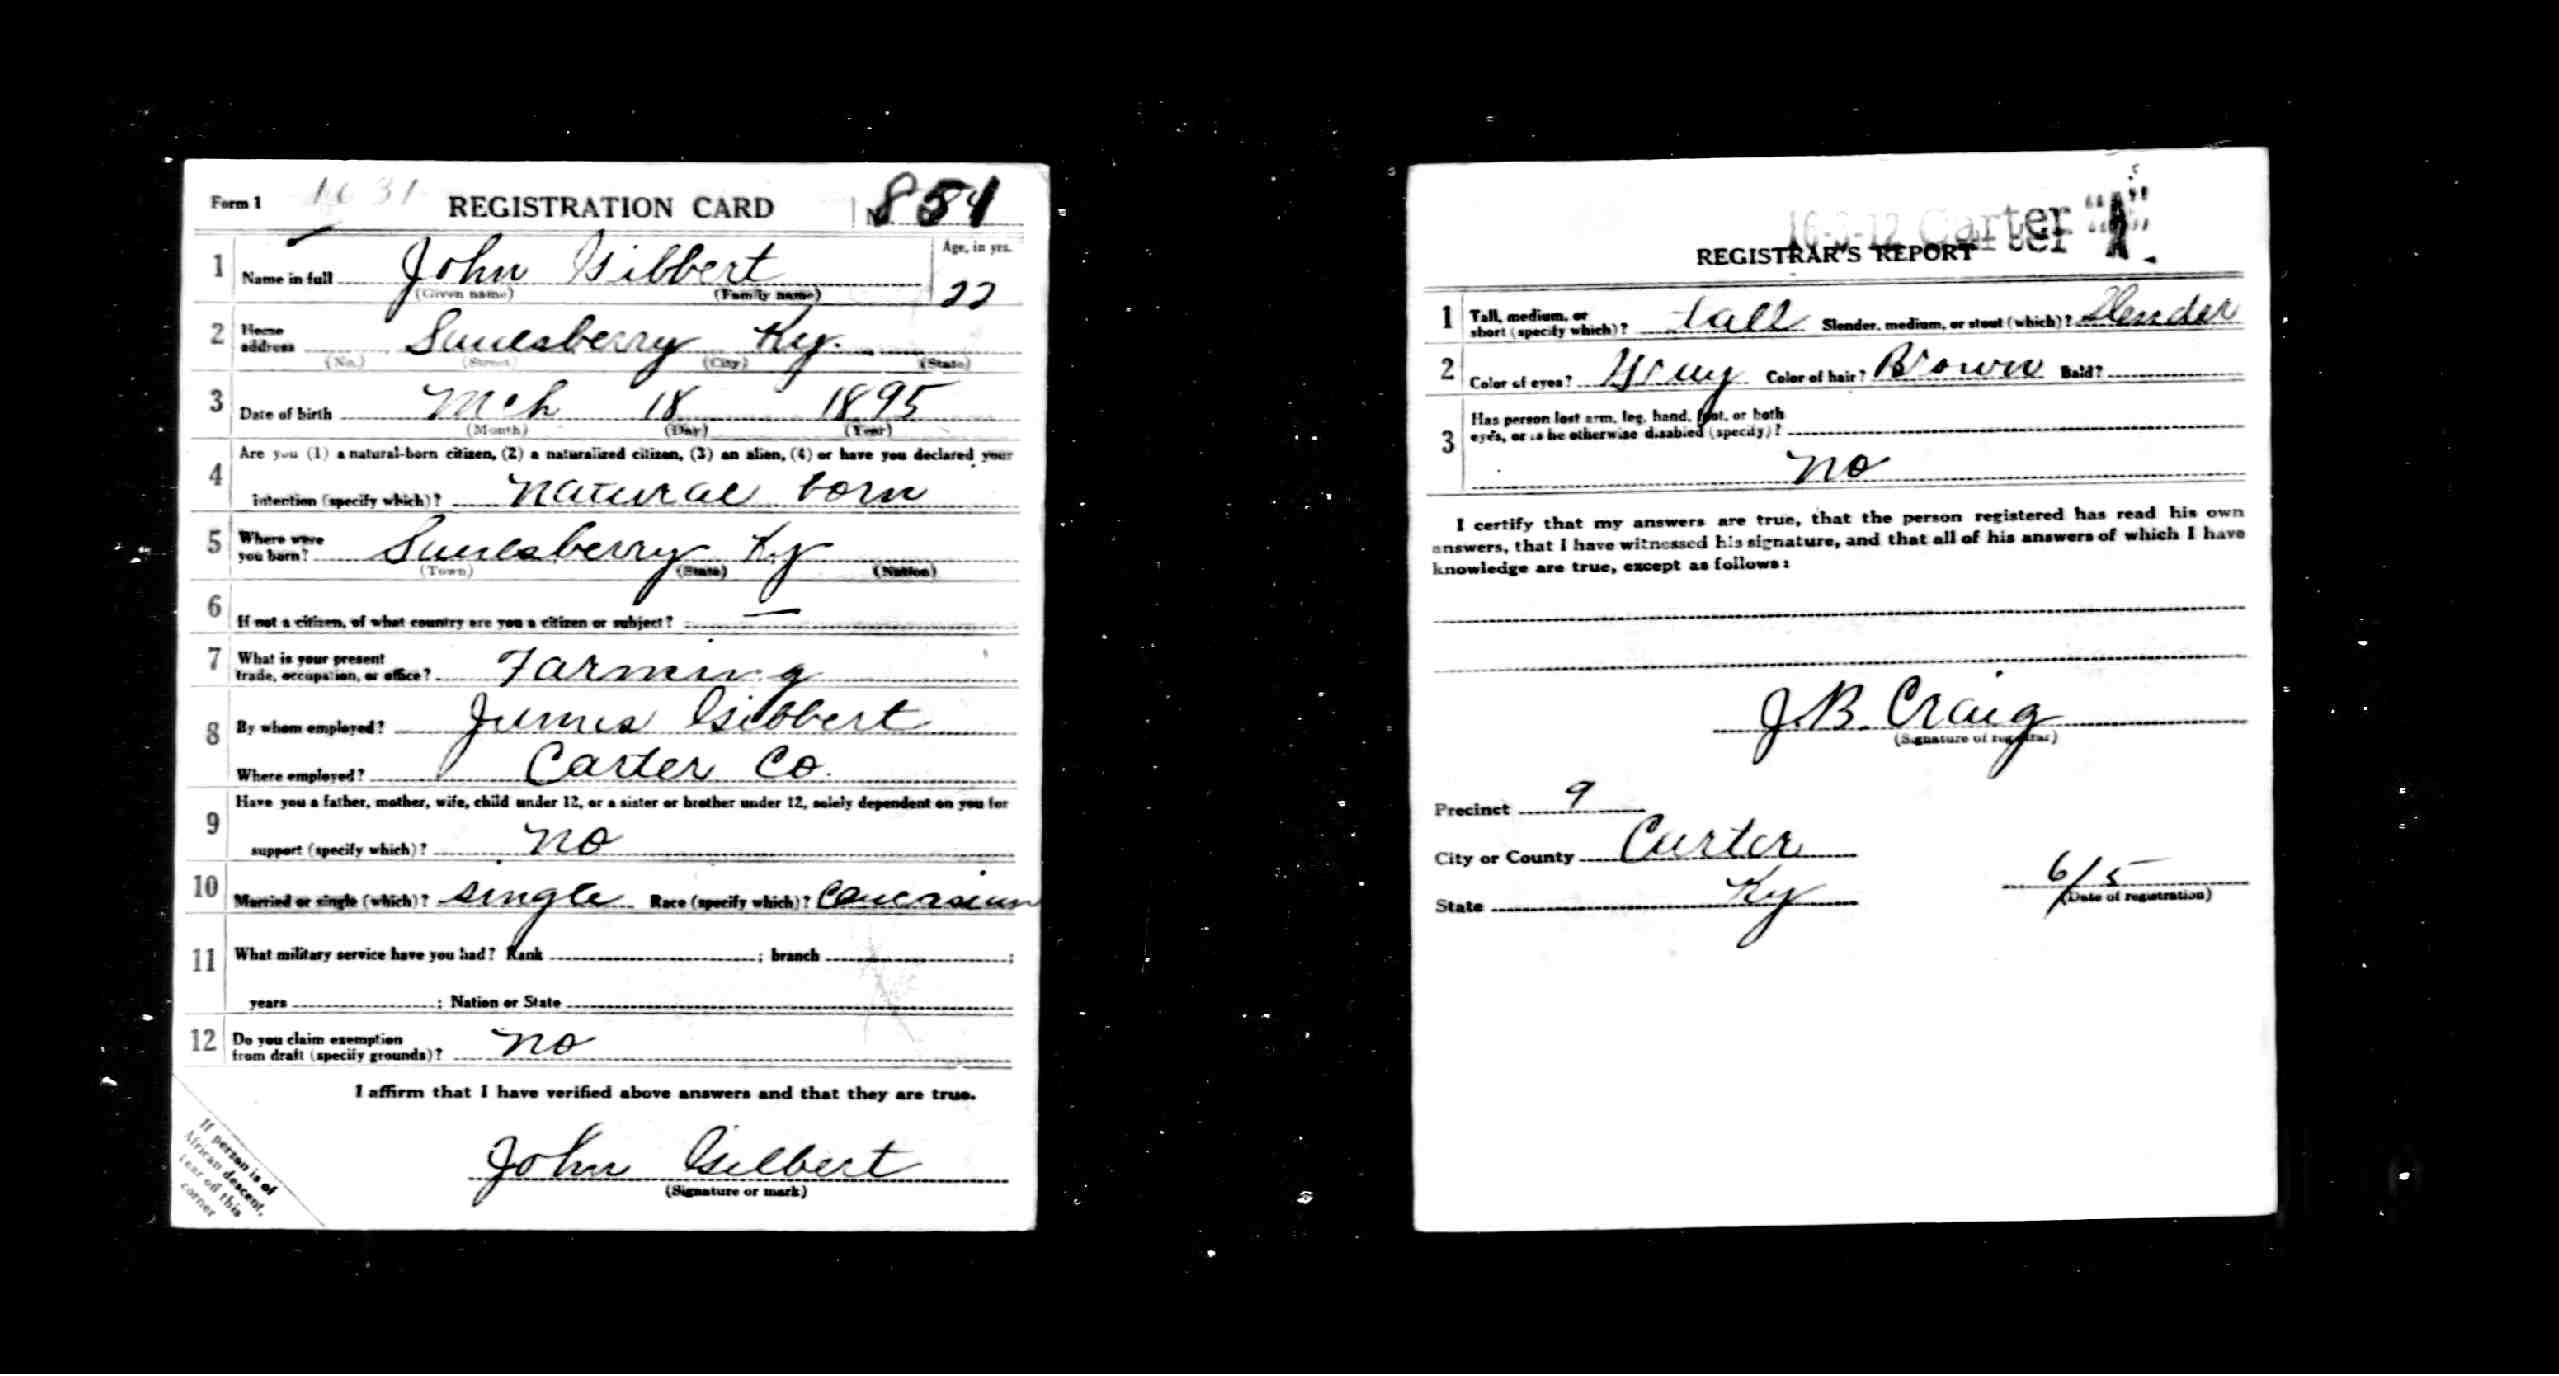 Form 1 1631 REGISTRATION CARD No. 854
1 Name in full John Gilbert Age, in yrs. 22
(Given name) (Family name)
2 Home address Saulsberry Ky.
(No.) (Street) (City) (State)
3 Date of birth Mch 18 1895
(Month) (Day) (Year)
Are you (1) a natural-born citizen, (2) a naturalized citizen, (3) an alien, (4) or have you declared your
4 intention (specify which)? natural born
5 Where were you born? Saulsberry Ky
(Town) (State) (Nation)
6 If not a citizen, of what country are you a citizen or subject? —
7 What is your present trade, occupation, or office? Farming
8 By whom employed? James Gilbert
Where employed? Carter Co.
Have you a father, mother, wife, child under 12, or a sister or brother under 12, solely dependent on you for
9 support (specify which)? no
10 Married or single (which)? single Race (specify which)? Caucasian
11 What military service have you had? Rank ; branch ;
years ; Nation or State
12 Do you claim exemption from draft (specify grounds)? no
I affirm that I have verified above answers and that they are true.
John Gilbert
(Signature or mark)
If person is of
African descent,
tear off this
corner
16-3-12 Carter "A"
REGISTRAR'S REPORT
1 Tall, medium, or short (specify which)? tall Slender, medium, or stout (which)? Slender
2 Color of eyes? Gray Color of hair? Brown Bald?
3 Has person lost arm, leg, hand, foot, or both eyes, or is he otherwise disabled (specify)?
no
I certify that my answers are true, that the person registered has read his own
answers, that I have witnessed his signature, and that all of his answers of which I have
knowledge are true, except as follows:
J.B. Craig
(Signature of registrar)
Precinct 9
City or County Carter
State Ky 6/5
(Date of registration)